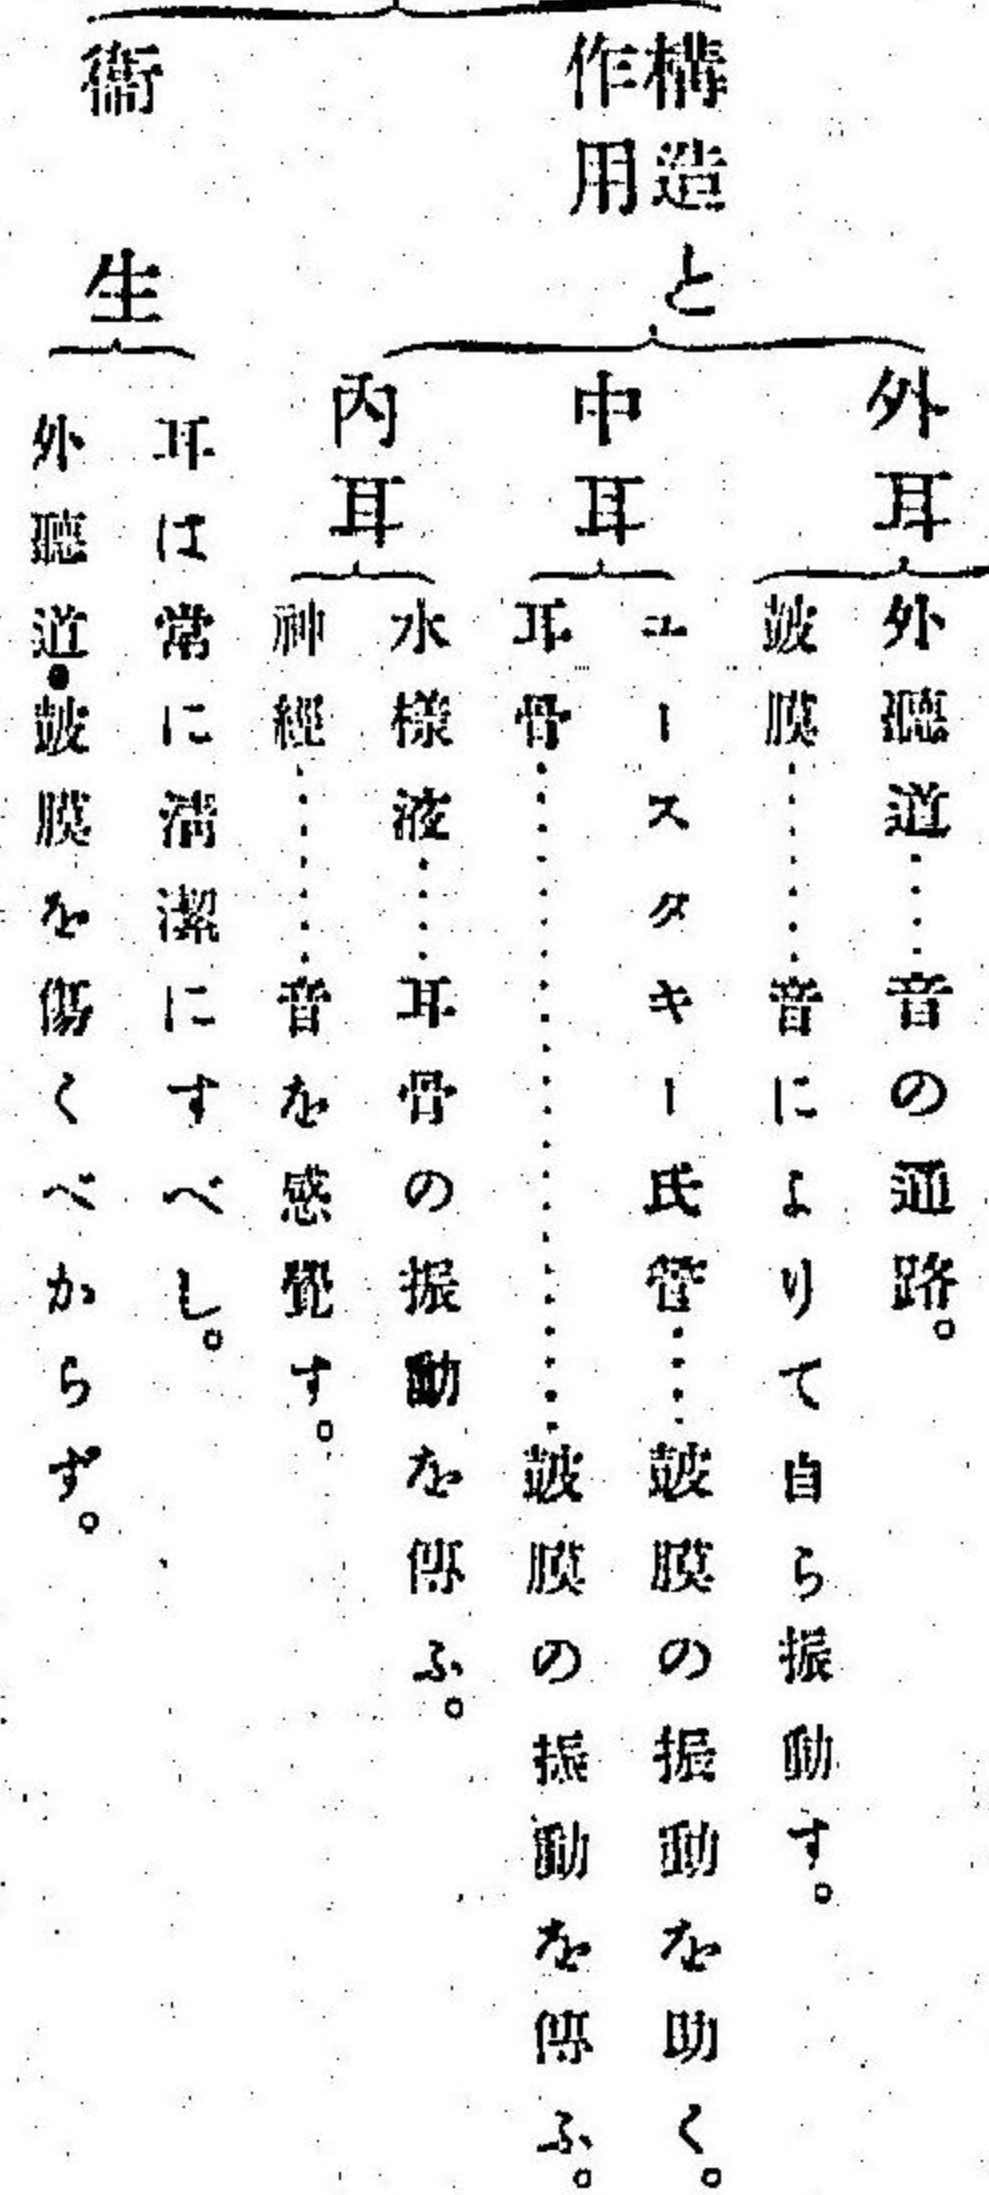 構造と
作用
外耳
外聽道……音の通路。
皷膜……音によりて自ら振動す。
中耳
ユースタキー氏管……皷膜の振動を助く。
耳骨……………………皷膜の振動を傳ふ。
内耳
水樣液……耳骨の振動を傳ふ。
神經……音を感覺す。
衞生
耳は常に淸潔にすべし。
外聽道・皷膜を傷くべからず。